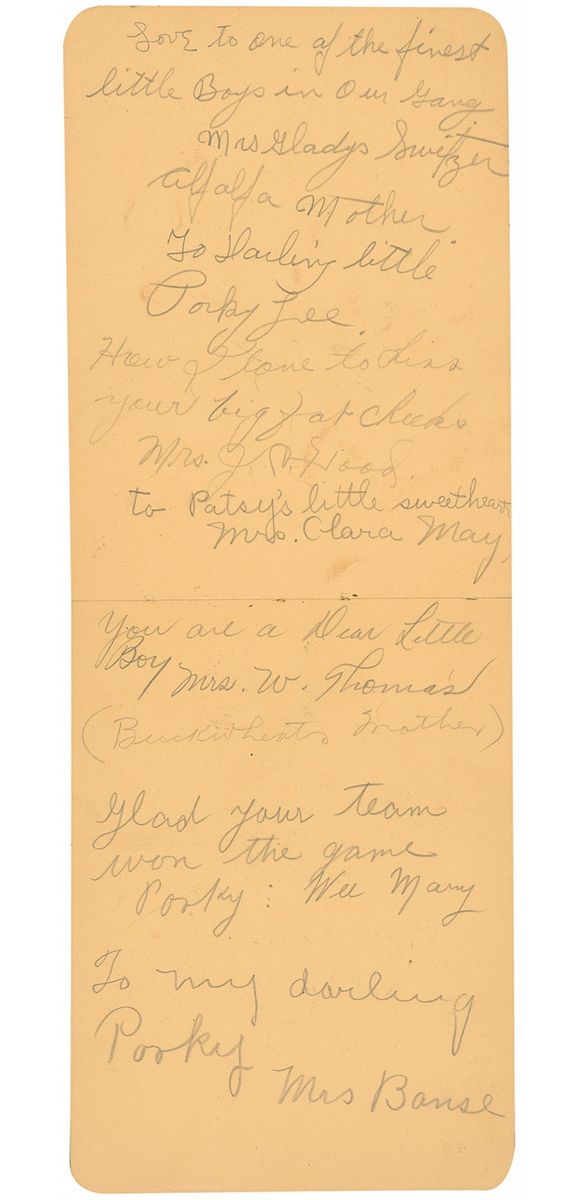 Love to one of the finest
little Boys in Our Gang
Mrs Gladys Switzer
Alfalfa Mother
To Darling little
Porky Lee
How I love to kiss
your big fat cheeks
Mrs. J Wood.
to Patsy's little sweetheart
Mrs. Clara May
You are a Dear Little
Boy Mrs. W. Thomas
(Buckwheats Mother)
Glad your team
won the game
Porky: Wee Mary
To my darling
Porky
Mrs Banse